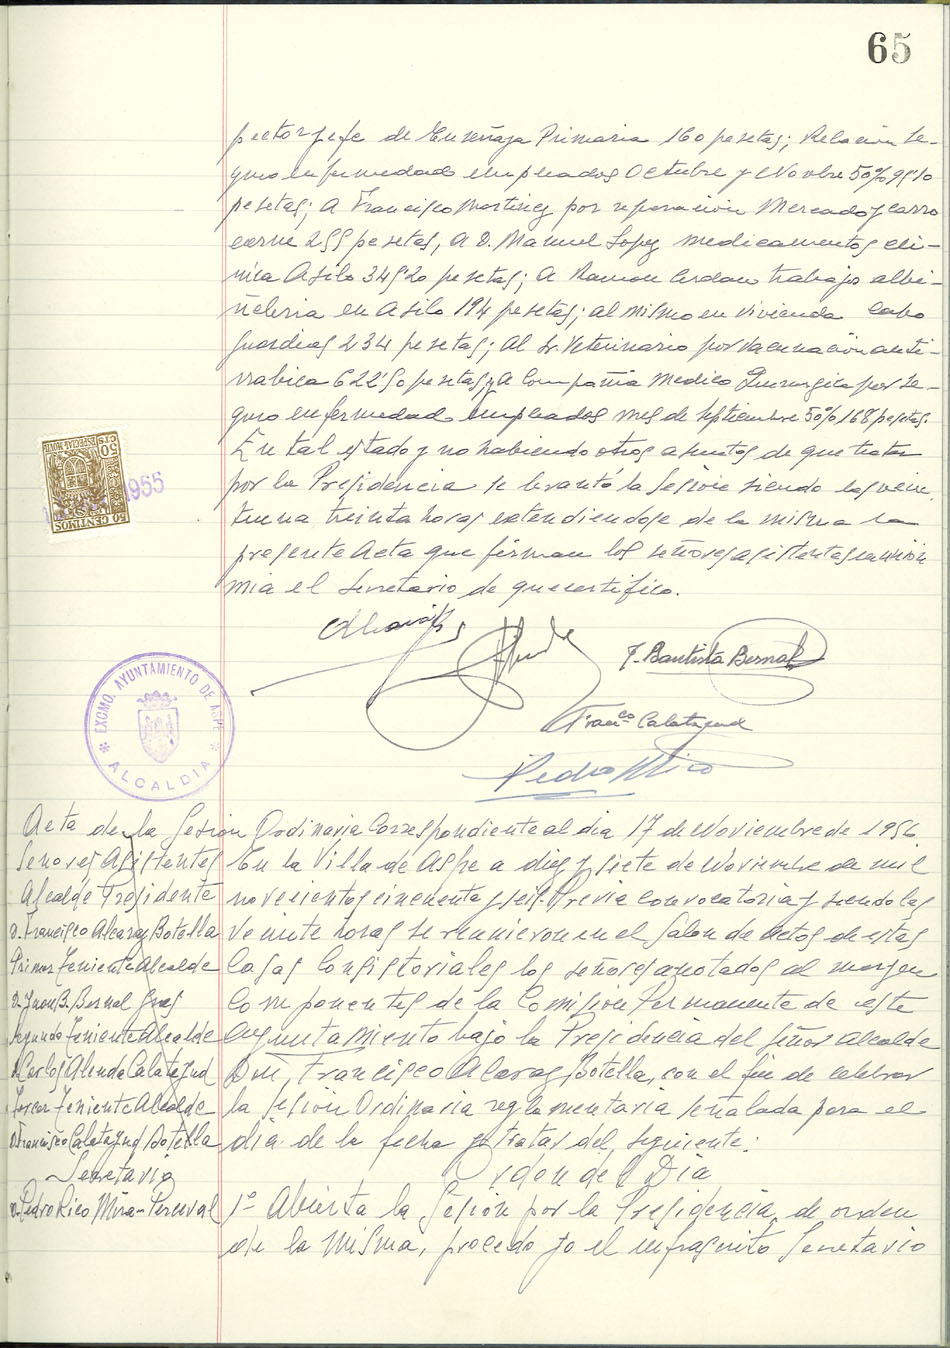 65
pector Jefe de Enseñaza Primaria 160 pesetas; Relacion se-
guro enfermedad empleados Octubre y Novbre 50% 95'10
pesetas; a Francisco Martinez por reparacion Mercado y carro
carne 255 pesetas, a D. Manuel Lopez medicamentos cli-
nica Asilo 345'20 pesetas; a Ramon Cerdan trabajos albi-
ñileria en Asilo 194 pesetas; al mismo en vivienda cabo
guardias 234 pesetas; al Sr. Veterinario por vacunacion anti-
rrabica 622'50 pesetas, y a Compañia Medico Quirurgica por se-
guro enfermedad empleados mes de Septiembre 50% 168 pesetas.
En tal estado y no habiendo otros asuntos de que tratar
por la Presidencia se levantó la sesion siendo las vein
tiuna treinta horas extendiendose de la misma la
presente Acta que firman los señores asistentes
mia el Secretario de que certifico.
50 CTS
ESPECIAL MOVIL
50 CENTIMOS
1955
J. Bautista Bernal
Franco Calatayud
Pedro Rico
EXCMO. AYUNTAMIENTO DE ASPE
* ALCALDIA *
Acta de la Sesion Ordinaria Correspondiente al dia 17 de Noviembre de 1956
Señores Asistentes
Alcalde Presidente
D. Francisco Alcaraz Botella
Primer Teniente Alcalde
D. Juan B. Bernal Gras
Segundo Teniente Alcalde
D. Carlos Alenda Calatayud
Tercer Teniente Alcalde
D. Francisco Calatayud Botella
Secretario
D. Pedro Rico Mira-Perceval
En la Villa de Aspe a diez y siete de Noviembre de mil
novecientos cincuenta y seis. Previa convocatoria y siendo las
veinte horas se reunieron en el Salon de Actos de estas
Casas Consistoriales los señores anotados al margen
Componentes de la Comision Permanente de este
Ayuntamiento bajo la Presidencia del Señor Alcalde
Don Francisco Alcaraz Botella, con el fin de celebrar
la Sesion Ordinaria reglamentaria señalada para el
dia de la fecha y tratar del siguiente:
Orden del Dia
1º Abierta la Sesion por la Presidencia, de orden
de la misma, procedo yo el infrascrito Secretario